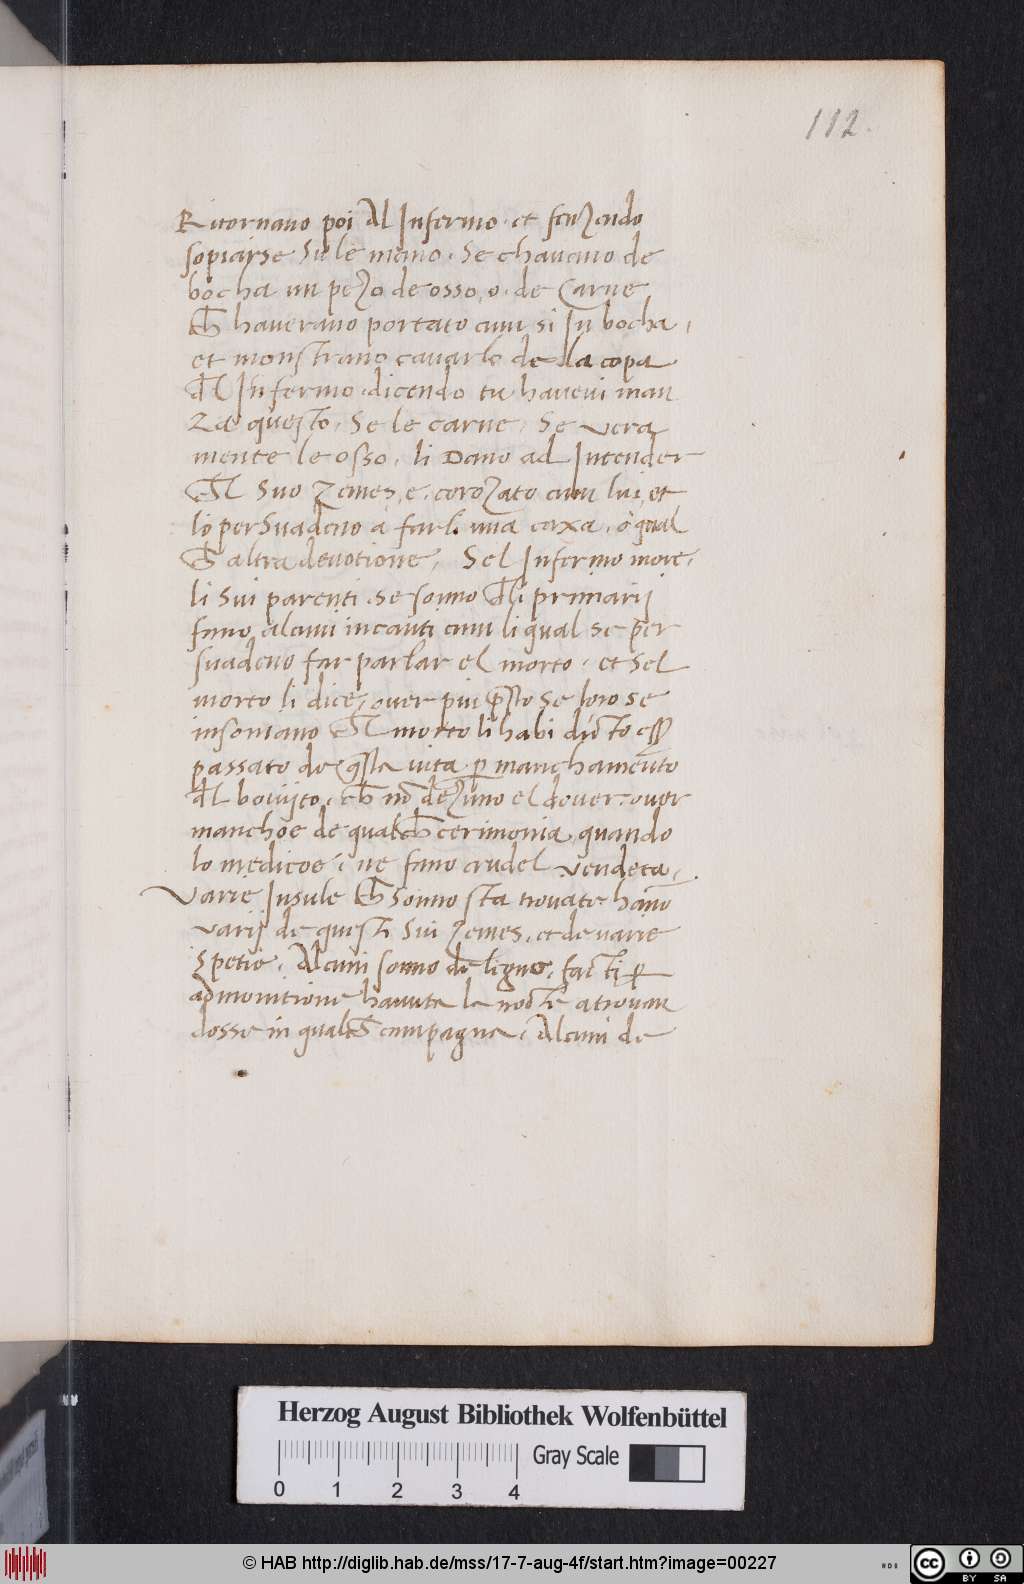 112.
Ritornano poi Al Infermo. et fenzendo
sopiarse su le mano. Se chavano de
bocha un pezo de osso, o. de Carne
Ch̄ haverano portato cum si In bocha,
et monstrano cavarlo de la copa
d̄l Infermo. dicendo tu havevi man
zæ questo. Se le carne, Se vera
mente le osso. li Dano ad Intender
ch̄l suo Zemes, e. corozato cum lui, et
lo persuadeno a farli una caxa. o qual
ch̄ altra devotione. Sel Infermo more,
li sui parenti. se sonno d̄li primarij
fano alcuni incanti cum li qual se per
suadeno far parlar el morto. et sel
morto li dice, over piu p̄sto se loro se
insoniano ch̄l morto li habi ditto eſſ̄
passato de q̄sta vita p̱ manchamento
d̄l bovito. ch̄ nō dezuno el dover. over
manchoe de qualch̄ cerimonia quando
lo medicoe, ne fano crudel vendeta.
Varie Insule ch̄ sonno sta trovate hanō
varij de questi sui Zemes. et de varie
spetie. Alcuni sonno de ligno. facti p̱
admonitione havuta la nocte a trovan
dosse in qualch̄ campagna, Alcuni de
Herzog August Bibliothek Wolfenbüttel
Gray Scale
0 1 2 3 4
© HAB http://diglib.hab.de/mss/17-7-aug-4f/start.htm?image=00227
cc BY SA